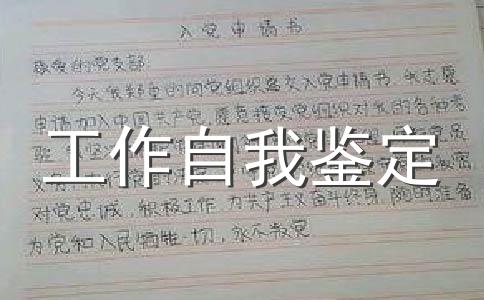 入党申请书
敬爱的党支部:
今天我郑重的向党组织递交入党申请书,我志愿
申请加入中国共产党,愿意接受党组织对我的各种考
验
党员
工作自我鉴定
对党忠诚,积极工作,为共产主义奋斗终身,随时准备
为党和人民牺牲一切,永不叛党